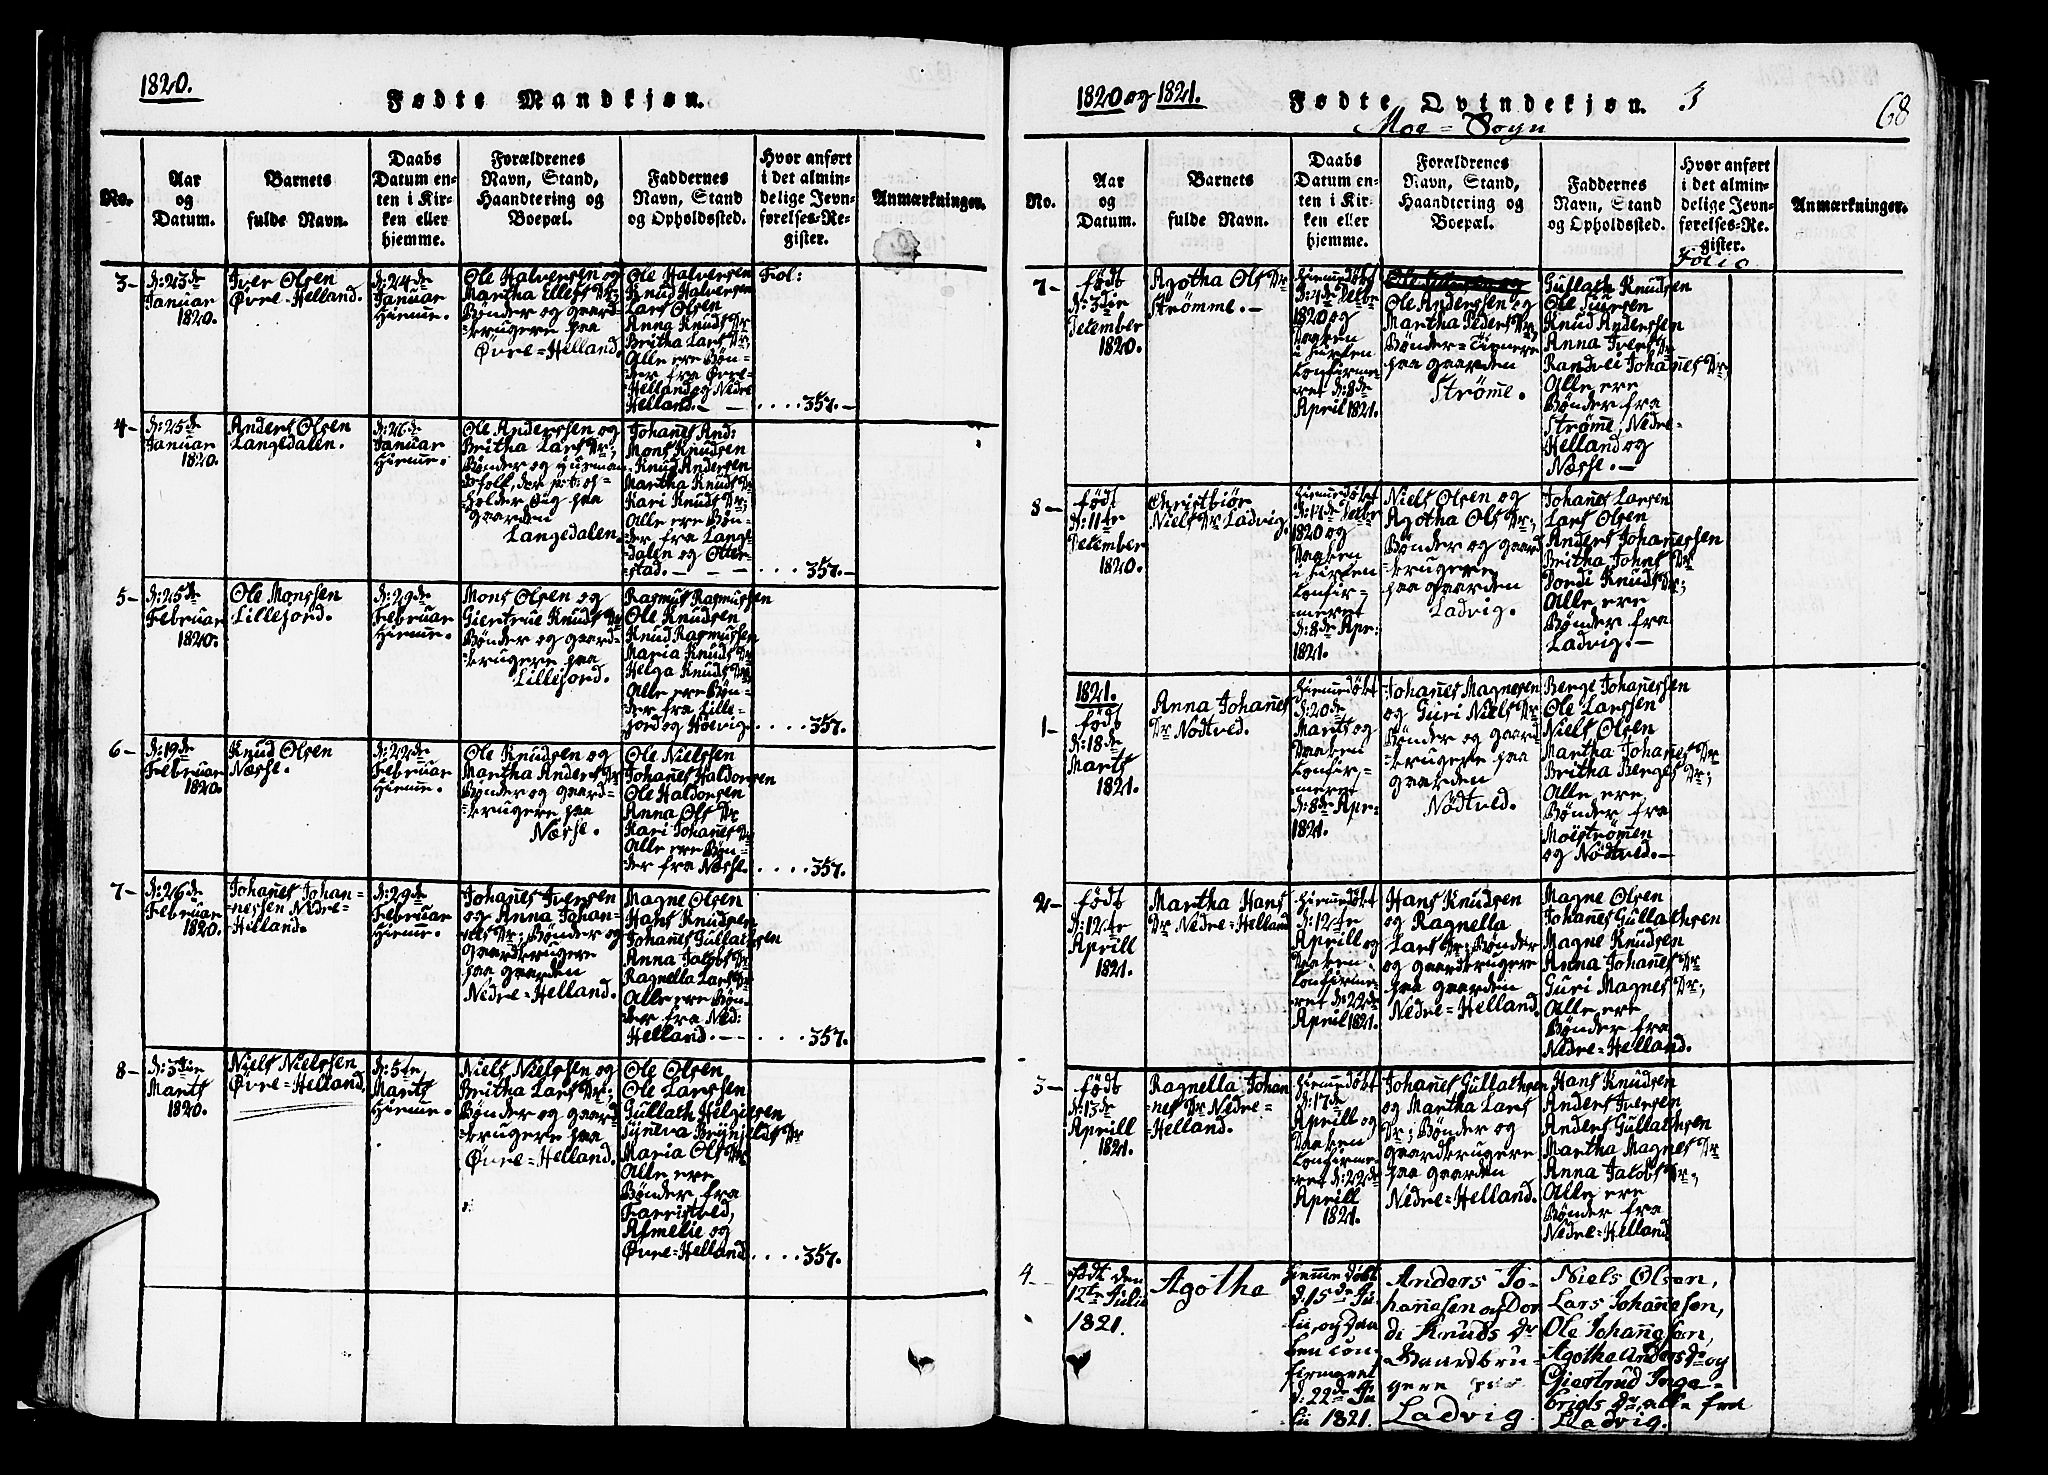 1820.
Fødte Mandkjøn.
No.
Aar
og
Datum.
Barnets
fulde Navn.
Daabs
Datum en-
ten i Kir-
ken eller
hjemme.
Forældrenes
Navn, Stand,
Haandtering og
Boepæl.
Faddernes
Navn, Stand
og Opholdssted.
Hvor anført
i det almin-
delige Jevn-
førelses-Re-
gister.
Anmærkninger.
3-
d: 23de
Januar
1820.
Iver Olsen
Øvre-Helland.
d: 24de
Januar
Hiemme.
Ole Halversen og
Martha Ellefs Dr;
Bønder og gaard-
-brugere paa
Øvre=Helland.
Ole Halversen
Knud Halversen
Lars Olsen
Anna Knuds Dr
Britha Lars Dr;
Alle ere Bøn-
der fra Øvre-
Helland og Nedre
Helland.-
Fol:
....357.-
4-
d: 25de
Januar
1820.
Anders Olsen
Langedalen.
d: 26de
Januar
Hiemme.
Ole Anderssen og
Britha Lars Dr;
Bønder og Huusmans
folk, der op-
holder sig paa
gaarden
Langedalen.
Johanes And:
Mons Knudsen
Knud Andersen
Martha Knuds Dr
Kari Knuds Dr;
Alle ere Bøn-
der fra Lange-
dalen og Otter-
stad.-
...357.-
5-
d: 25de
Februar
1820.
Ole Monssen
Lillefjord.
d: 29de
Februar
Hiemme.
Mons Olsen og
Giertrue Knuds Dr
Bønder og gaard-
-brugere paa
Lillefjord.
Rasmus Rasmussen
Ole Knudsen
Knud Rasmussen
Maria Knuds Dr
Helga Knuds Dr
Alle ere Bøn-
der fra Lille-
fjord og Høevig
....357.
6-
d: 19de
Februar
1820.
Knud Olsen
Næsse.
d: 22de
Februar
Hiemme.
Ole Knudsen og
Martha Anders Dr
Bønder og gaard-
-brugere paa
Næsse.
Ole Nielssen
Johanes Haldorsen
Ole Haldorsen
Anna Ols Dr
Kari Johanes Dr;
Alle ere Bøn-
der fra Næsse.
....357.
7-
d: 26de
Februar
1820.
Johanes Johan-
nessen Nedre-
-Helland.
d: 29de
Februar
Hiemme.
Johanes Iversen
og Anna Johan-
nes Dr; Bønder og
gaardbrugere
paa gaarden
Nedre=Helland.
Magne Olsen
Hans Knudsen
Johanes Gullachsen
Anna Jacobs Dr
Ragnella Lars Dr
Alle ere Bøn-
der fra Ned:
Helland.-
....357.
8-
d: 3die
Marts
1820.
Niels Nielssen
Øvre=Helland.
d: 5te
Marts
Hiemme.
Niels Nielssen og
Britha Lars Dr;
Bønder og gaard-
-brugere paa
Øvre=Helland.
Ole Olsen
Ole Larssen
Gullach Helgiesen
Synelva Brynjelds Dr
Maria Ols Dr
Alle ere
Bønder fra
Farristved,
Asmelie og
Øvre=Helland
....357.
1820 og 1821.
Fødte Qvindekjøn.
3
68
Moe=Sogn
No.
Aar
og
Datum.
Barnets
fulde Navn.
Daabs
Datum en-
ten i Kir-
ken eller
hjemme.
Forældrenes
Navn, Stand,
Haandtering og
Boepæl.
Faddernes
Navn, Stand
og Opholdssted.
Hvor anført
i det almin-
delige Jevn-
førelses-Re-
gister.
Folio
Anmærkninger.
7-
født
d: 3die
December
1820.
Agotha Ols Dr
Strømme.-
Hiemmedøbt
d: 4de Decbr
1820 og
Daaben
i Kirken
Confirme-
ret d: 8de
April 1821.
Ole Anderssen og
Martha Peders Dr;
Bønder=Tienere
paa gaarden
Strøme.
Gullach Knudsen
Ole Iversen
Knud Anderssen
Anna Ivers Dr
Randvei Johanes Dr;
Alle ere
Bønder fra
Strøme, Nedre-
Helland og
Næsse.-
8-
født
d: 11te
December
1820.
Christbiør
Niels Dr Ladvig.
Hiemmedøbt
d: 14de Decbr
1820 og
Daaben
i Kirken
Confir-
meret
d: 8de Apr:
1821.
Niels Olsen og
Agotha Ols Dr;
Bønder og gaard
-brugere
paa gaarden
Ladvig.
Johanes Larsen
Lars Olsen
Anders Johanessen
Britha Johns Dr
Dordi Knuds Dr;
Alle ere
Bønder fra
Ladvig.-
1-
1821.
født
d: 18de
Marts
1821.
Anna Johanes
Dr Nødtved.
Hiemmedøbt
d: 20de
Marts og
Daaben
Confir-
meret
d: 8de Apr-
1821.
Johanes Magnesen
og Guri Niels Dr
Bønder og gaard
-brugere paa
gaarden
Nødtved.
Berge Johanessen
Ole Larssen
Niels Olsen
Martha Johanes Dr
Britha Berges Dr;
Alle ere
Bønder fra
Moestrømen
og Nødtved.-
2-
født
d: 12te
Aprill
1821.
Martha Hans
Dr Nedre=Helland
Hiemmedøbt
d: 12te
Aprill og
Daaben
Confirme-
ret d: 22de
April 1821.
Hans Knudsen
og Ragnella
Lars Dr; Bønder
og gaardbrugere
paa gaarden
Nedre=Helland.
Magne Olsen
Johanes Gullachsen
Magne Knudsen
Anna Johanes Dr
Guri Magnes Dr;
Alle ere
Bønder fra
Nedre=Helland.
3-
født
d: 13de
Aprill
1821.
Ragnella Johan
-nes Dr Nedre=
-Helland.
Hiemmedøbt
d: 17de
Aprill og
Daaben
Confirme-
ret d: 22de
Aprill
1821.
Johanes Gullachsen
og Martha Lars
Dr; Bønder og
gaardbrugere
paa gaarden
Nedre=Helland.
Hans Knudsen
Anders Iversen
Anders Gullachsen
Martha Magnes Dr
Anna Jacobs Dr;
Alle ere
Bønder fra
Nedre=Helland
4-
født den
12te Julie
1821.
Agothe
Hiemmedøbt
d: 15de Ju-
lii, og Daa
ben Con-
firmeret
d: 22de Ju
lii 1821.
Anders Jo-
hannesen og Dor
di Knuds Dr
Gaardbru-
gere paa
Ladvig
Niels Olsen,
Lars Johannesen,
Ole Johannesen,
Agothe Anders Dr og
Giertrud Inge-
brigts Dr, alle fra
Ladvig.